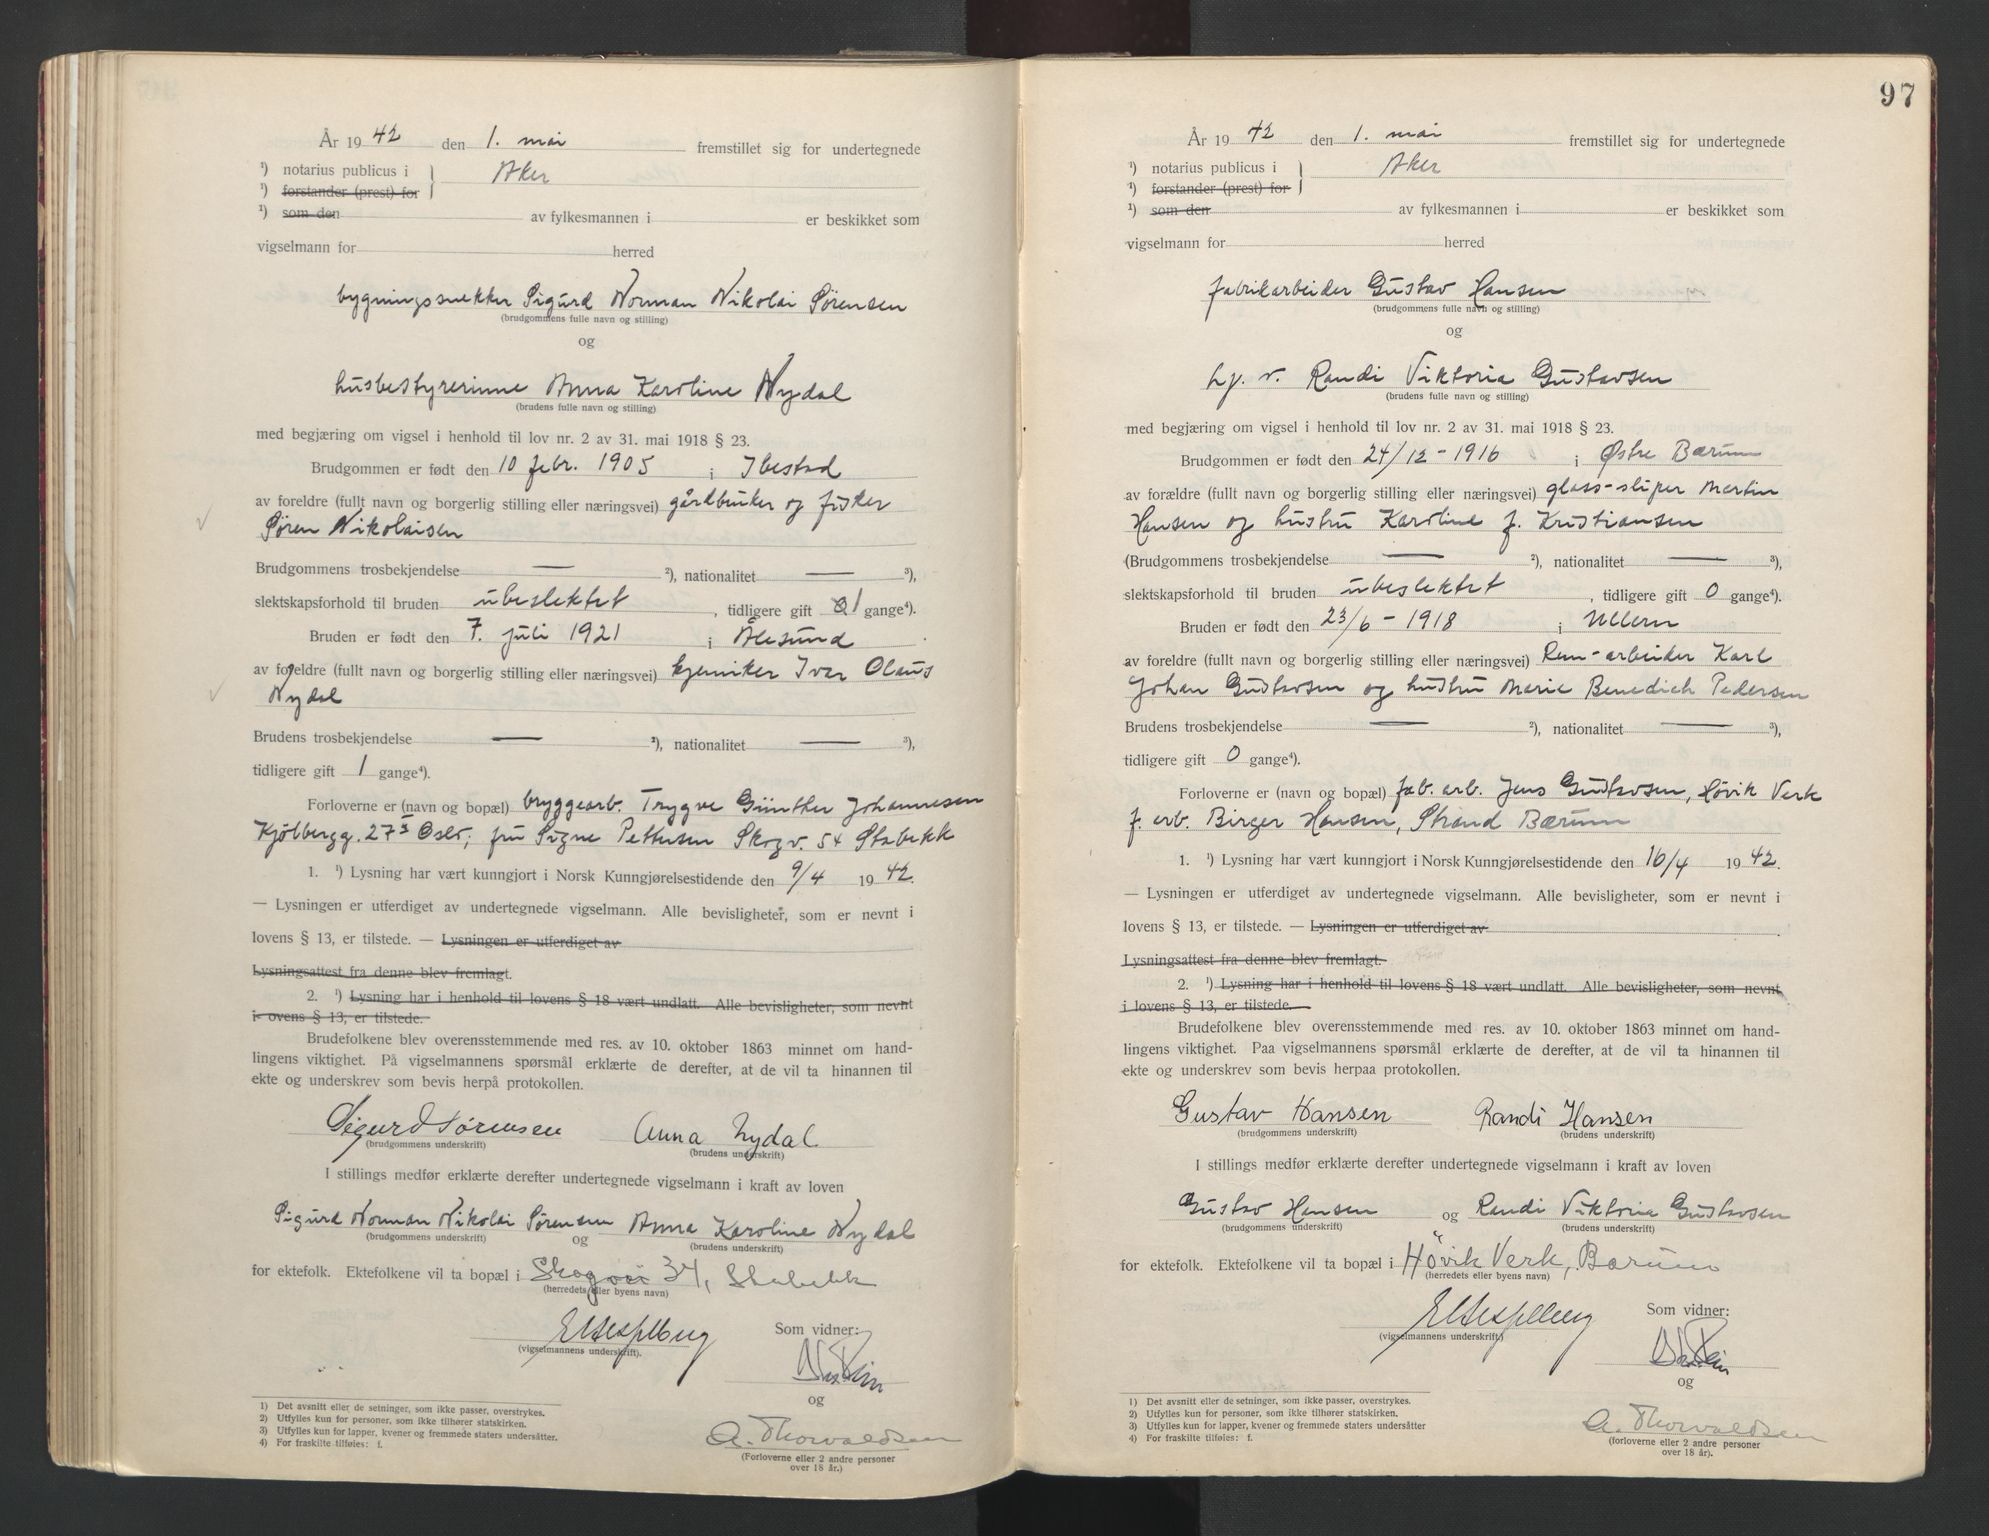 År 1942 den 1. mai fremstillet sig for undertegnede
¹) notarius publicus i } Aker
¹) forstander (prest) for
¹) som den av fylkesmannen i er beskikket som
vigselmann for herred
bygningssnekker Sigurd Norman Nikolai Sørensen
(brudgommens fulle navn og stilling)
og
husbestyrerinne Anna Karoline Nydal
(brudens fulle navn og stilling)
med begjæring om vigsel i henhold til lov nr. 2 av 31. mai 1918 § 23.
Brudgommen er født den 10 febr. 1905 i Ibestad
av foreldre (fullt navn og borgerlig stilling eller næringsvei) gårdbruker og fisker
Søren Nikolaisen
Brudgommens trosbekjendelse — ²), nationalitet — ³),
slektskapsforhold til bruden ubeslektet, tidligere gift 1 gange⁴).
Bruden er født den 7. juli 1921 i Ålesund
av foreldre (fullt navn og borgerlig stilling eller næringsvei) kjemiker Ivar Olaus
Nydal
Brudens trosbekjendelse — ²), nationalitet — ³),
tidligere gift 1 gange⁴).
Forloverne er (navn og bopæl) bryggearb. Trygve Günther Johannesen
Kjölbergg. 27 I Oslo; fru Signe Pettersen Skogv. 54 Stabekk
1. ¹) Lysning har vært kunngjort i Norsk Kunngjørelsestidende den 9/4 1942.
— Lysningen er utferdiget av undertegnede vigselmann. Alle bevisligheter, som er nevnt i
lovens § 13, er tilstede. — Lysningen er utferdiget av
Lysningsattest fra denne blev fremlagt.
2. ¹) Lysning har i henhold til lovens § 18 vært undlatt. Alle bevisligheter, som nevnt
i ovens § 13, er tilstede.
Brudefolkene blev overensstemmende med res. av 10. oktober 1863 minnet om hand-
lingens viktighet. På vigselmannens spørsmål erklærte de derefter, at de vil ta hinannen til
ekte og underskrev som bevis herpå protokollen.
Sigurd Sørensen Anna Nydal
(brudgommens underskrift) (brudens underskrift)
I stillings medfør erklærte derefter undertegnede vigselmann i kraft av loven
Sigurd Norman Nikolai Sørensen og Anna Karoline Nydal
(brudgommens underskrift) (brudens underskrift)
for ektefolk. Ektefolkene vil ta bopæl i Skogvei 34, Stabekk
(herredets eller byens navn)
Som vidner:
(vigselmannens underskrift).
og
A. Thorvaldsen
(Forloverne eller 2 andre personer
over 18 år.)
1) Det avsnitt eller de setninger, som ikke passer, overstrykes.
2) Utfylles kun for personer, som ikke tilhører statskirken.
3) Utfylles kun for lapper, kvener og fremmede staters undersåtter.
4) For fraskilte tilføies: f.
97
År 1942 den 1. mai fremstillet sig for undertegnede
¹) notarius publicus i } Aker
¹) forstander (prest) for
¹) som den av fylkesmannen i er beskikket som
vigselmann for herred
fabrikarbeider Gustav Hansen
(brudgommens fulle navn og stilling)
og
Randi Viktoria Gustavsen
(brudens fulle navn og stilling)
med begjæring om vigsel i henhold til lov nr. 2 av 31. mai 1918 § 23.
Brudgommen er født den 24/12 - 1916 i Østre Bærum
av forældre (fullt navn og borgerlig stilling eller næringsvei) glass-sliper Martin
Hansen og hustru Karoline f. Kristiansen
(Brudgommens trosbekjendelse — ²), nationalitet — ³),
slektskapsforhold til bruden ubeslektet, tidligere gift 0 gange⁴).
Bruden er født den 23/6 - 1918 i Ullern
av foreldre (fullt navn og borgerlig stilling eller næringsvei) Ren-arbeider Karl
Johan Gustavsen og hustru Marie Benedich Pedersen
Brudens trosbekjendelse — ²), nationalitet — ³),
tidligere gift 0 gange⁴).
Forloverne er (navn og bopæl) fab. arb. Jens Gustavsen, Høvik Verk
f. arb. Birger Hansen, Strand Bærum
1. ¹) Lysning har vært kunngjort i Norsk Kunngjørelsestidende den 16/4 1942.
— Lysningen er utferdiget av undertegnede vigselmann. Alle bevisligheter, som er nevnt i
lovens § 13, er tilstede. — Lysningen er utferdiget av
Lysningsattest fra denne blev fremlagt.
2. ¹) Lysning har i henhold til lovens § 18 vært undlatt. Alle bevisligheter, som nevnt
i lovens § 13, er tilstede.
Brudefolkene blev overensstemmende med res. av 10. oktober 1863 minnet om hand-
lingens viktighet. Paa vigselmannens spørsmål erklærte de derefter, at de vil ta hinannen til
ekte og underskrev som bevis herpaa protokollen.
Gustav Hansen Randi Hansen
(brudgommens underskrift) (brudens underskrift)
I stillings medfør erklærte derefter undertegnede vigselmann i kraft av loven
Gustav Hansen og Randi Viktoria Gustavsen
(brudgommens underskrift) (brudens underskrift)
for ektefolk. Ektefolkene vil ta bopæl i Hövik Verk, Bærum
(herredets eller byens navn)
Som vidner:
(vigselmannens underskrift)
og
A. Thorvaldsen
(forloverne eller 2 andre personer
over 18 år).
1) Det avsnitt eller de setninger, som ikke passer, overstrykes.
2) Utfylles kun for personer, som ikke tilhører statskirken.
3) Utfylles kun for lapper, kvener og fremmede staters undersåtter
4) For fraskilte tilføies: f.